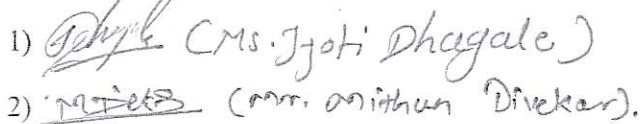 1) (Ms. Jyoti Dhagale)
2) (Mr. Mithun Divekar).